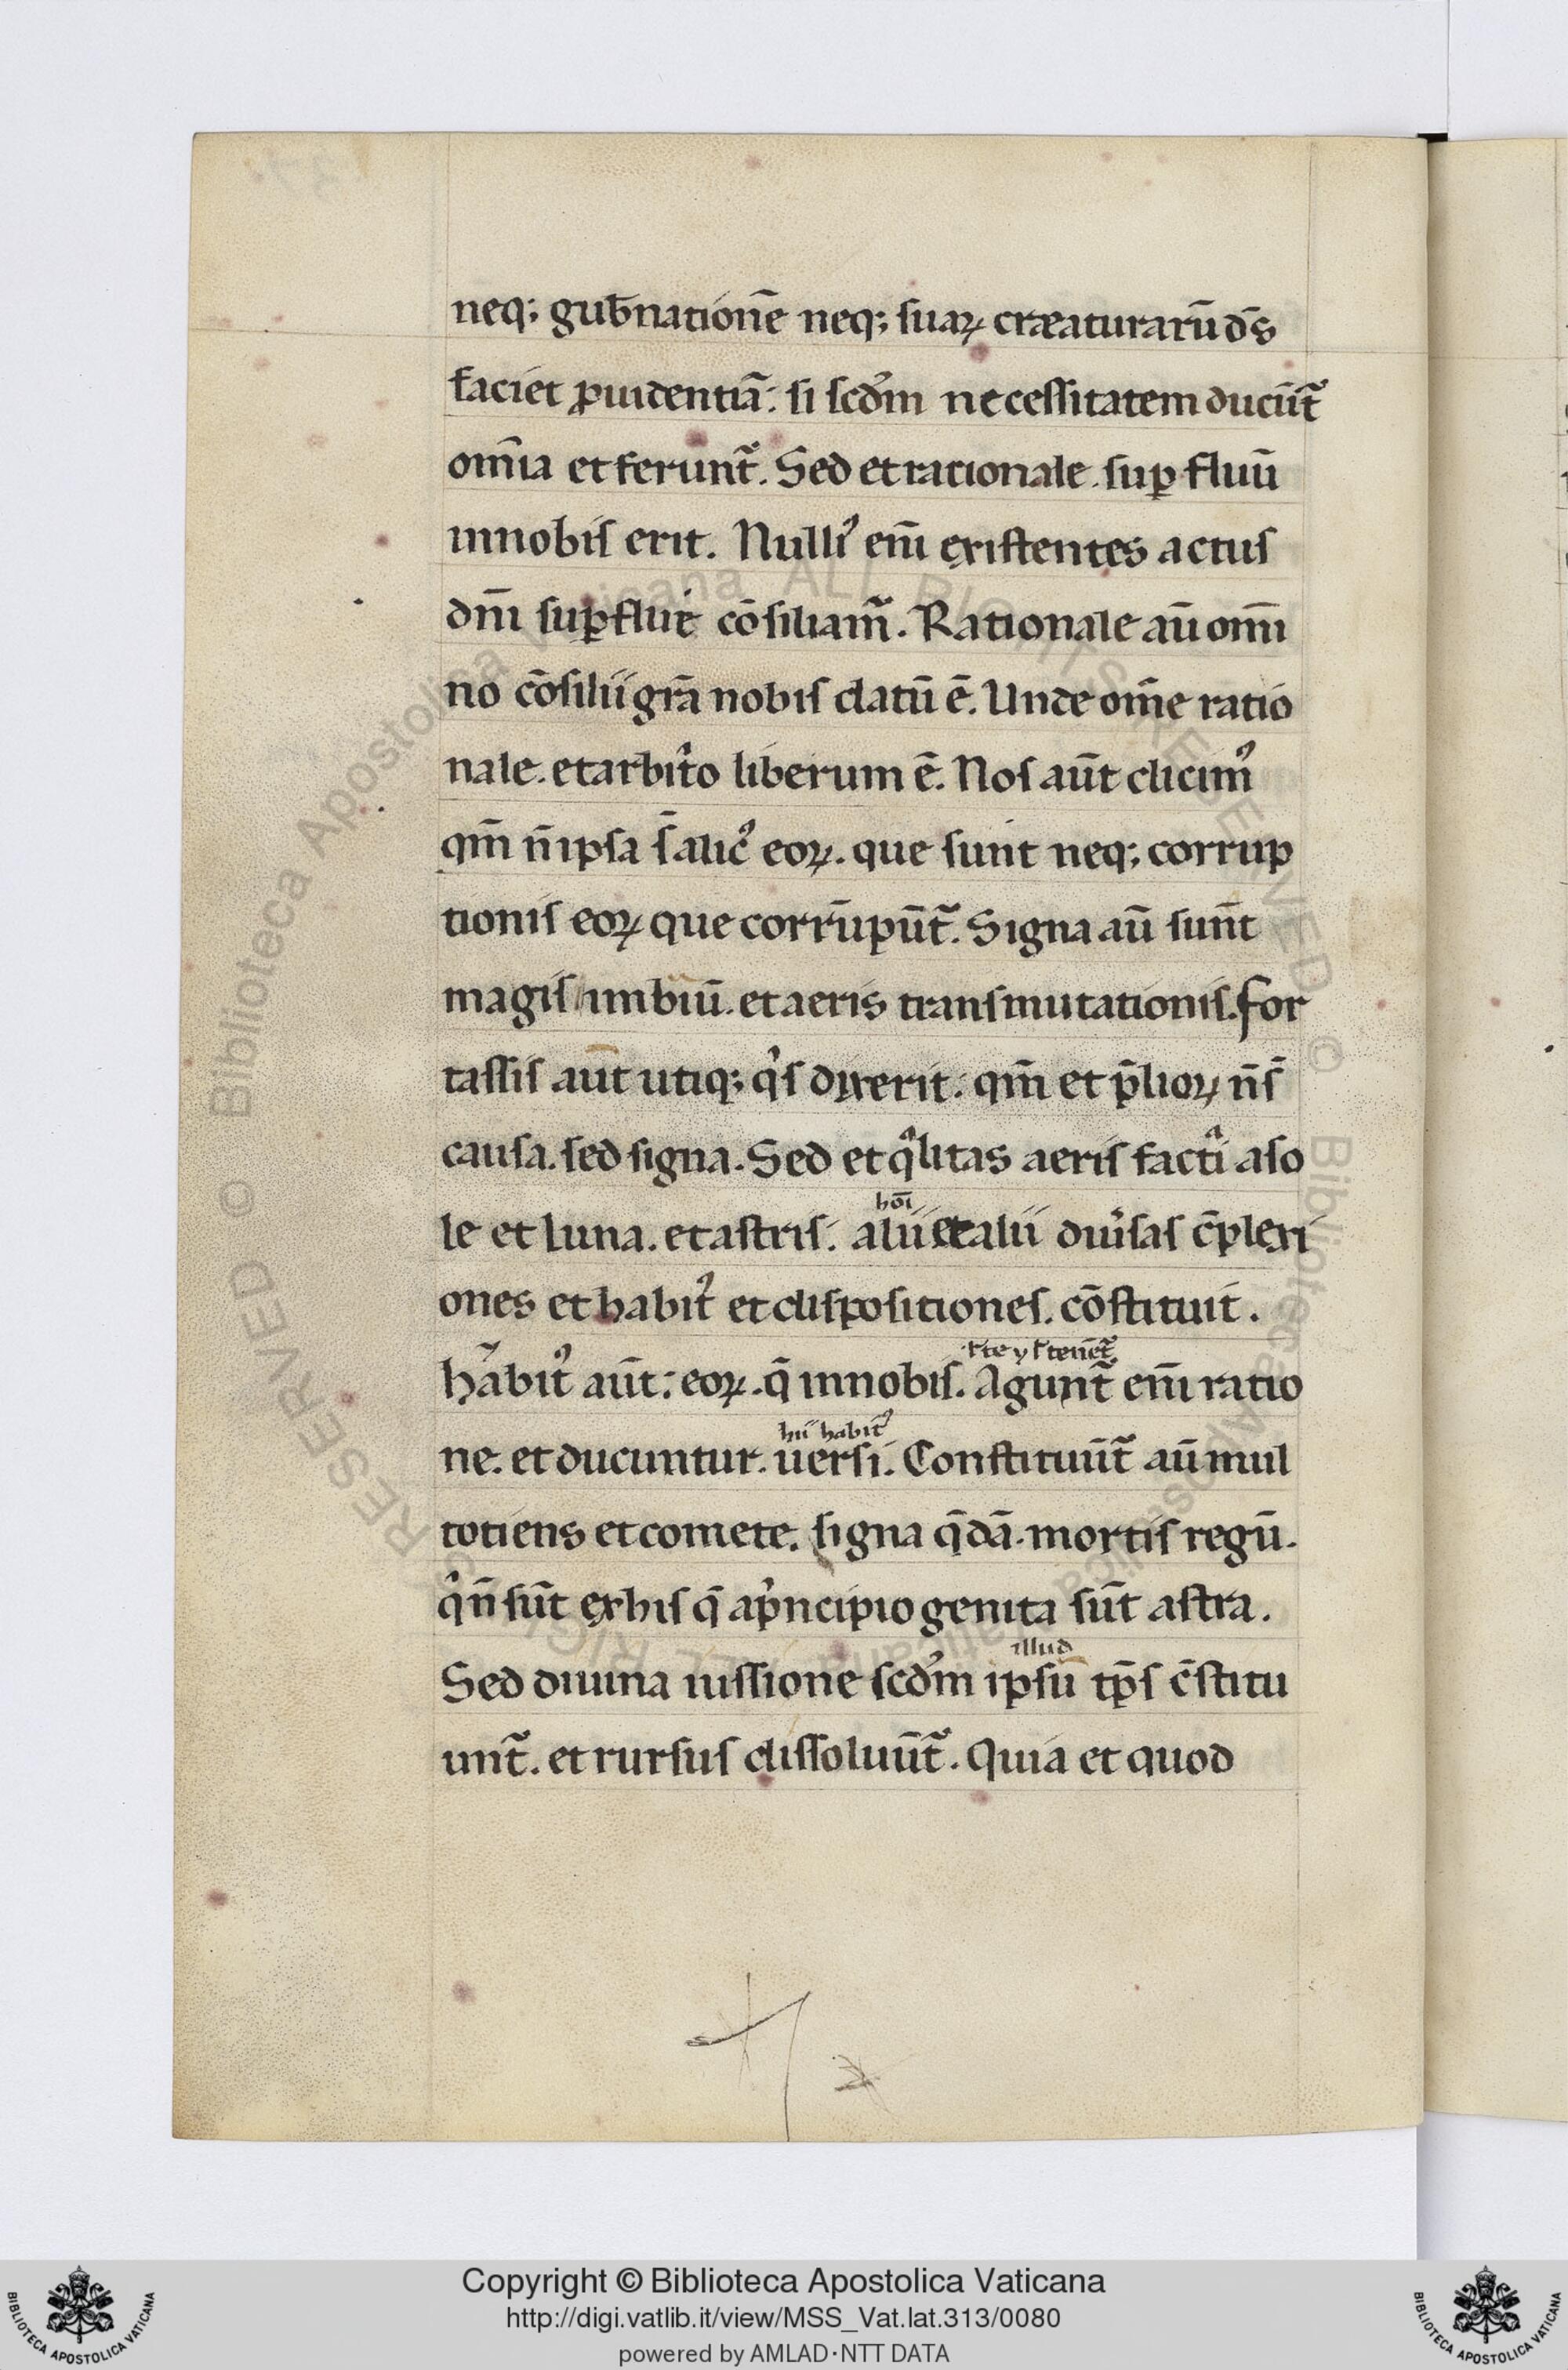 neq; gub̅natione̅ neq; suaꝝ cræaturaru̅ ds̅
faciet ꝓuidentia̅: si scd̓m necessitatem ducu̅t᷑
om̅ia et ferunt᷑. Sed et rationale. suꝑfluu̅
innobis erit. Nulliꝰ eni̅ existentes actus
dn̅i suꝑflue co̅siliam᷑. Rationale au̅ omni̅
no co̅silii gr̅a nobis datu̅ e̅. Unde om̅e ratio
nale. et arbit̓o liberum e̅. Nos au̅t dicimꝰ
qm̅ n̅ ipsa s̅ alicꝰ eoꝝ. que sunt neq; corrup
tionis eoꝝ que corru̅pu̅t᷑. Signa au̅ sun̅t
magis imbiu̅. et aeris transmutationis. for
tassis aut utiq; q̓s dixerit: qm̅ et p̅lioꝝ n̅ s̅
causa. sed signa. Sed et qͣlitas aeris factͣi aso
ho̅i
le et luna. et astris. alii et alii diu̓sas c̅plexi
ones et habitꝰ et dispositiones. co̅stituit.
habitꝰ au̅t: eoꝝ. q̅ innobis. Agunt᷑ eni̅ ratio
hii habitꝰ
ne. et ducuntur. uersi. Constituu̅t᷑ au̅ mul
totiens et comete. signa q̅da̅. mortis regu̅.
q̓ n̅ su̅t exhis q̅ ap̓ncipio genita su̅t astra.
illud
Sed diuina iussione scd̓m ipsu̅ tp̅s c̅stitu
unt᷑. et rursus dissoluu̅t᷑. Quia et quod
Copyright © Biblioteca Apostolica Vaticana
http://digi.vatlib.it/view/MSS_Vat.lat.313/0080
powered by AMLAD·NTT DATA